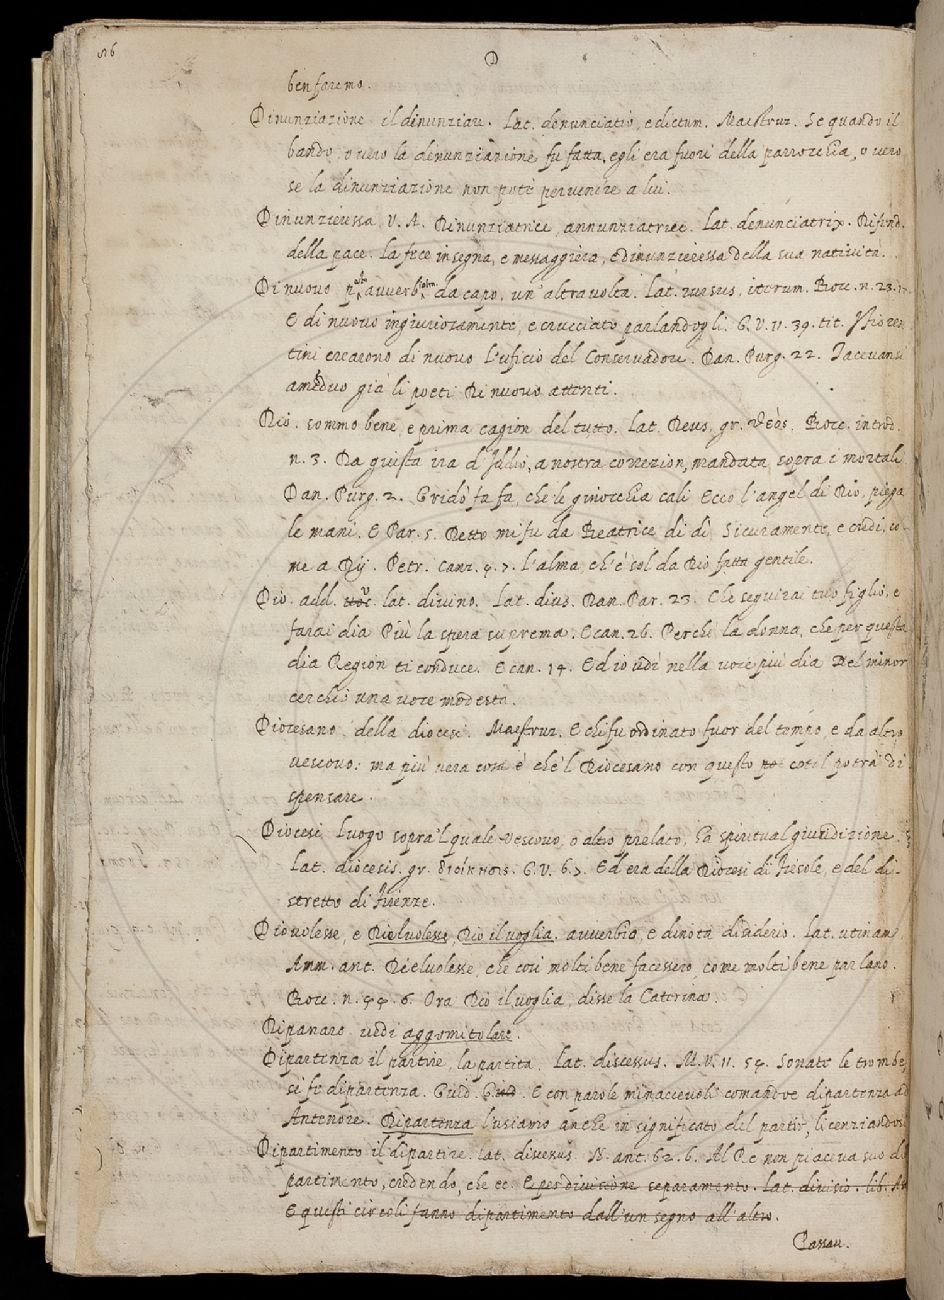 526
D
ben faremo.
Dinunziazione il dinunziare. Lat. denunciatio, edictum. Maestruz. Se quando il
bando, o vero la denunziazione fu fatta, egli era fuori della parrocchia, o vero
se la dinunziazione non potè pervenire a lui.
Dinunzieressa V. A. Dinunziatrice, annunziatrice. Lat. denunciatrix.
della pace. La fece insegna, e messaggiera, e dinunzieressa della sua natività.
Di nuovo avverb. da capo, un'altra volta. Lat. rursus, iterum. Bocc. n. 23.
E di nuovo ingiuriosamente, e crucciato parlandogli. G. V. 11. 39. tit. I fioren
tini crearono di nuovo l'uficio del Conservadore. Dan. Purg. 22. Tacevansi
ameduo già li poeti Di nuovo attenti.
Dio. sommo bene, e prima cagion del tutto. Lat. Deus, gr. θεὸς. Bocc. introd.
n. 3. Da giusta ira d'Iddio, a nostra correzion, mandata sopra i mortali
Dan. Purg. 2. Gridò fa fa, che le ginocchia cali Ecco l'angel di Dio, piega
le mani. E Par. 5. Detto mi fu da Beatrice di dì Sicuramente, e credi, co
me a Dij. Petr. canz. 47. L'alma, ch'è sol da Dio fatta gentile.
Dio. add. lat. divino. Lat. dius. Dan. Par. 23. Che seguirai tuo figlio, e
farai dia Più la spera suprema. E can. 26. Perchè la donna, che per questa
dia Region ti conduce. E can. 14. Ed io udì nella voce più dia Del minor
cerchi una voce modesta.
Diocesano della diocesi. Maestruz. E chi fu ordinato fuor del tempo, e da altro
vescovo: ma più vera cosa è che'l Diocesano con questo cotal potrà di
spensare.
Diocesi Luogo sopra'l quale Vescovo, o altro prelato, ha spiritual giuridizione.
Lat. diocesis. gr. διοίκησις. G. V. 6. 7. Ed era della Diocesi di Fiesole, e del di-
stretto di Firenze.
Diovolesse, e Dioluolesse Dio il voglia. avverbio, e dinota disiderio. Lat. utinam
Amm. ant. Dieluolesse, che così molti bene facessero, come molti bene parlano.
Bocc. n. 44. 6. Ora Dio il voglia, disse la Caterina.
Dipanare vedi aggomitolare.
Dipartenza il partire, la partita. Lat. discessus. M. V. 11. 54. Sonato le trombe,
si fè dipartenza. Guid. G. E con parole minaccevoli comandoe dipartenza ad
Antenore. Dipartenza l'usiamo anche in significato del partir, licenziandosi
Dipartimento il dipartire. lat. discessus. N. ant. 62. 6. Al Re non piaceva suo di
partimento, credendo, che ec. E per divisione separamento. Lat. divisio. lib.
E questi circoli fanno dipartimento dall'un segno all'altro.
Passau.